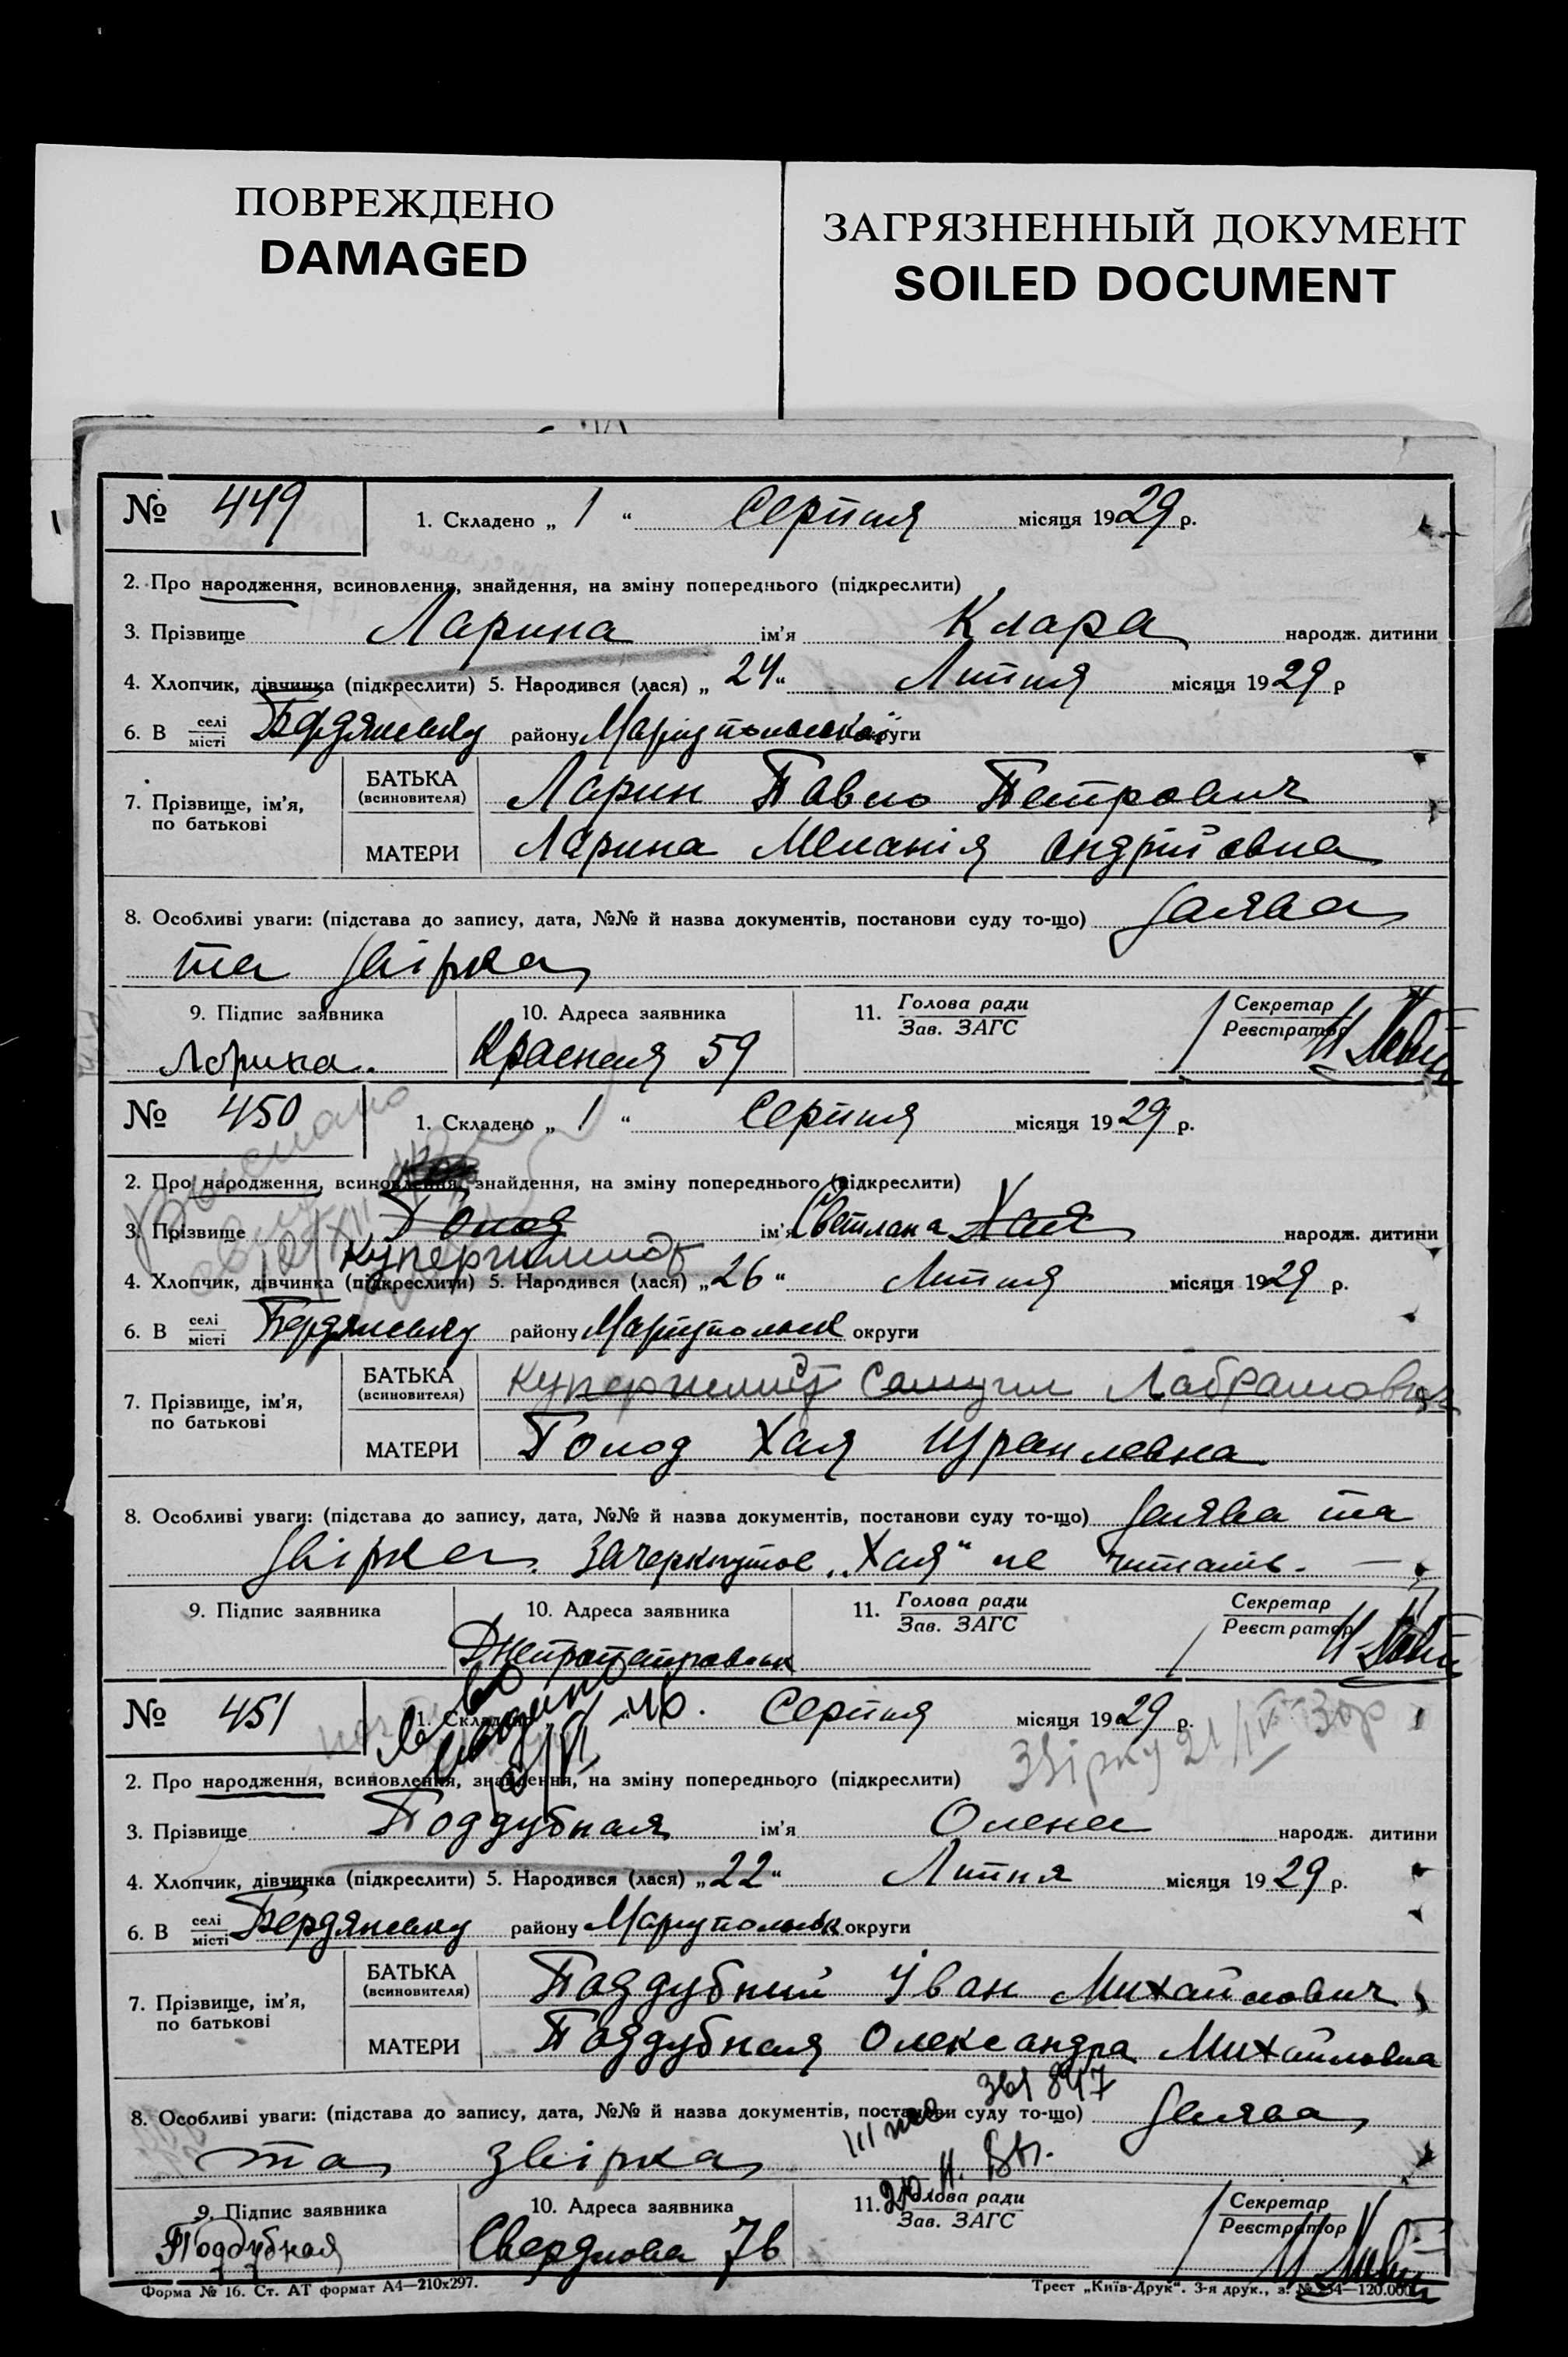 ПОВРЕЖДЕНО
DAMAGED
ЗАГРЯЗНЕННЫЙ ДОКУМЕНТ
SOILED DOCUMENT
№ 449
1. Складено „ 1 “ Серпня місяця 1929 р.
2. Про народження, всиновлення, знайдення, на зміну попереднього (підкреслити)
3. Прізвище Ларина ім’я Клара народж. дитини
4. Хлопчик, дівчинка (підкреслити) 5. Народився (лася) „ 24 “ Липня місяця 1929 р
6. В селі місті Бердянську району Маріупольської округи
7. Прізвище, ім’я, по батькові
БАТЬКА (всиновителя) Ларин Павло Петрович
МАТЕРИ Ларина Меланія Андрійовна
8. Особливі уваги: (підстава до запису, дата, №№ й назва документів, постанови суду то-що) Заява
та звірка
9. Підпис заявника 10. Адреса заявника 11. Голова ради Зав. ЗАГС Секретар Реєстратор
Ларина. Красная 59
№ 450
1. Складено „ 1 “ Серпня місяця 1929 р.
2. Про народження, всиновлення, знайдення, на зміну попереднього (підкреслити)
3. Прізвище Голод ім’я Светлана Хая народж. дитини
Купершмидт
4. Хлопчик, дівчинка (підкреслити) 5. Народився (лася) „ 26 “ Липня місяця 1929 р.
6. В селі місті Бердянську району Маріупольськ округи
7. Прізвище, ім’я, по батькові
БАТЬКА (всиновителя) Купершмидт Самуил
МАТЕРИ Голод Хая Израилевна
8. Особливі уваги: (підстава до запису, дата, №№ й назва документів, постанови суду то-що) Заява та
звірка. Зачеркнутое „Хая“ не читать.
9. Підпис заявника 10. Адреса заявника 11. Голова ради Зав. ЗАГС Секретар Реєстратор
Днепропетровськ
№ 451
1. Складено Серпня місяця 1929 р.
Звірку 21/IV 30р
2. Про народження, всиновлення, знайдення, на зміну попереднього (підкреслити)
3. Прізвище Поддубная ім’я Олена народж. дитини
4. Хлопчик, дівчинка (підкреслити) 5. Народився (лася) „ 22 “ Липня місяця 1929 р.
6. В селі місті Бердянську району Маріупольськ округи
7. Прізвище, ім’я, по батькові
БАТЬКА (всиновителя) Поддубний Іван Михайлович
МАТЕРИ Поддубная Олександра Михайловна
8. Особливі уваги: (підстава до запису, дата, №№ й назва документів, постанови суду то-що) Заява
та звірка
9. Підпис заявника 10. Адреса заявника 11. Голова ради Зав. ЗАГС Секретар Реєстратор
Поддубная Свердлова 76
Форма № 16. Ст. АТ формат А4—210х297.
Трест „Київ-Друк“. 3-я друк., з.